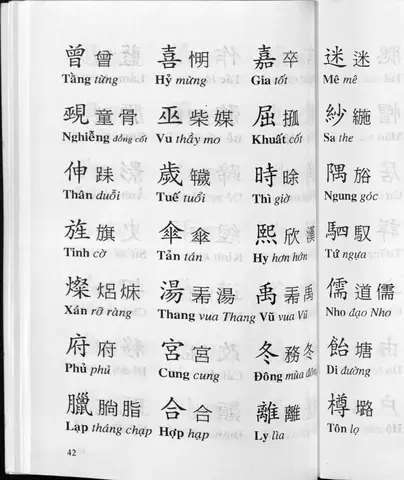 曾 曾 喜 㤓 嘉 卒 迷 迷
Tằng từng Hỷ mừng Gia tốt Mê mê
覡 童骨 巫 柴媒 屈 紗
Nghiễng đồng cốt Vu thầy mo Khuất cốt Sa the
伸 歲 時 隅
Thân duỗi Tuế tuổi Thì giờ Ngung góc
旌 旗 傘 傘 熙 欣 駟 馭
Tinh cờ Tản tán Hy hơn hớn Tứ ngựa
燦 湯 湯 禹 禹 儒 道儒
Xán rỡ ràng Thang vua Thang Vũ vua Vũ Nho đạo Nho
府 府 宮 宮 冬 務冬 飴 塘
Phủ phủ Cung cung Đông mùa đông Di đường
臘 脂 合 合 離 離 樽
Lạp tháng chạp Hợp hạp Ly lìa Tôn lọ
42